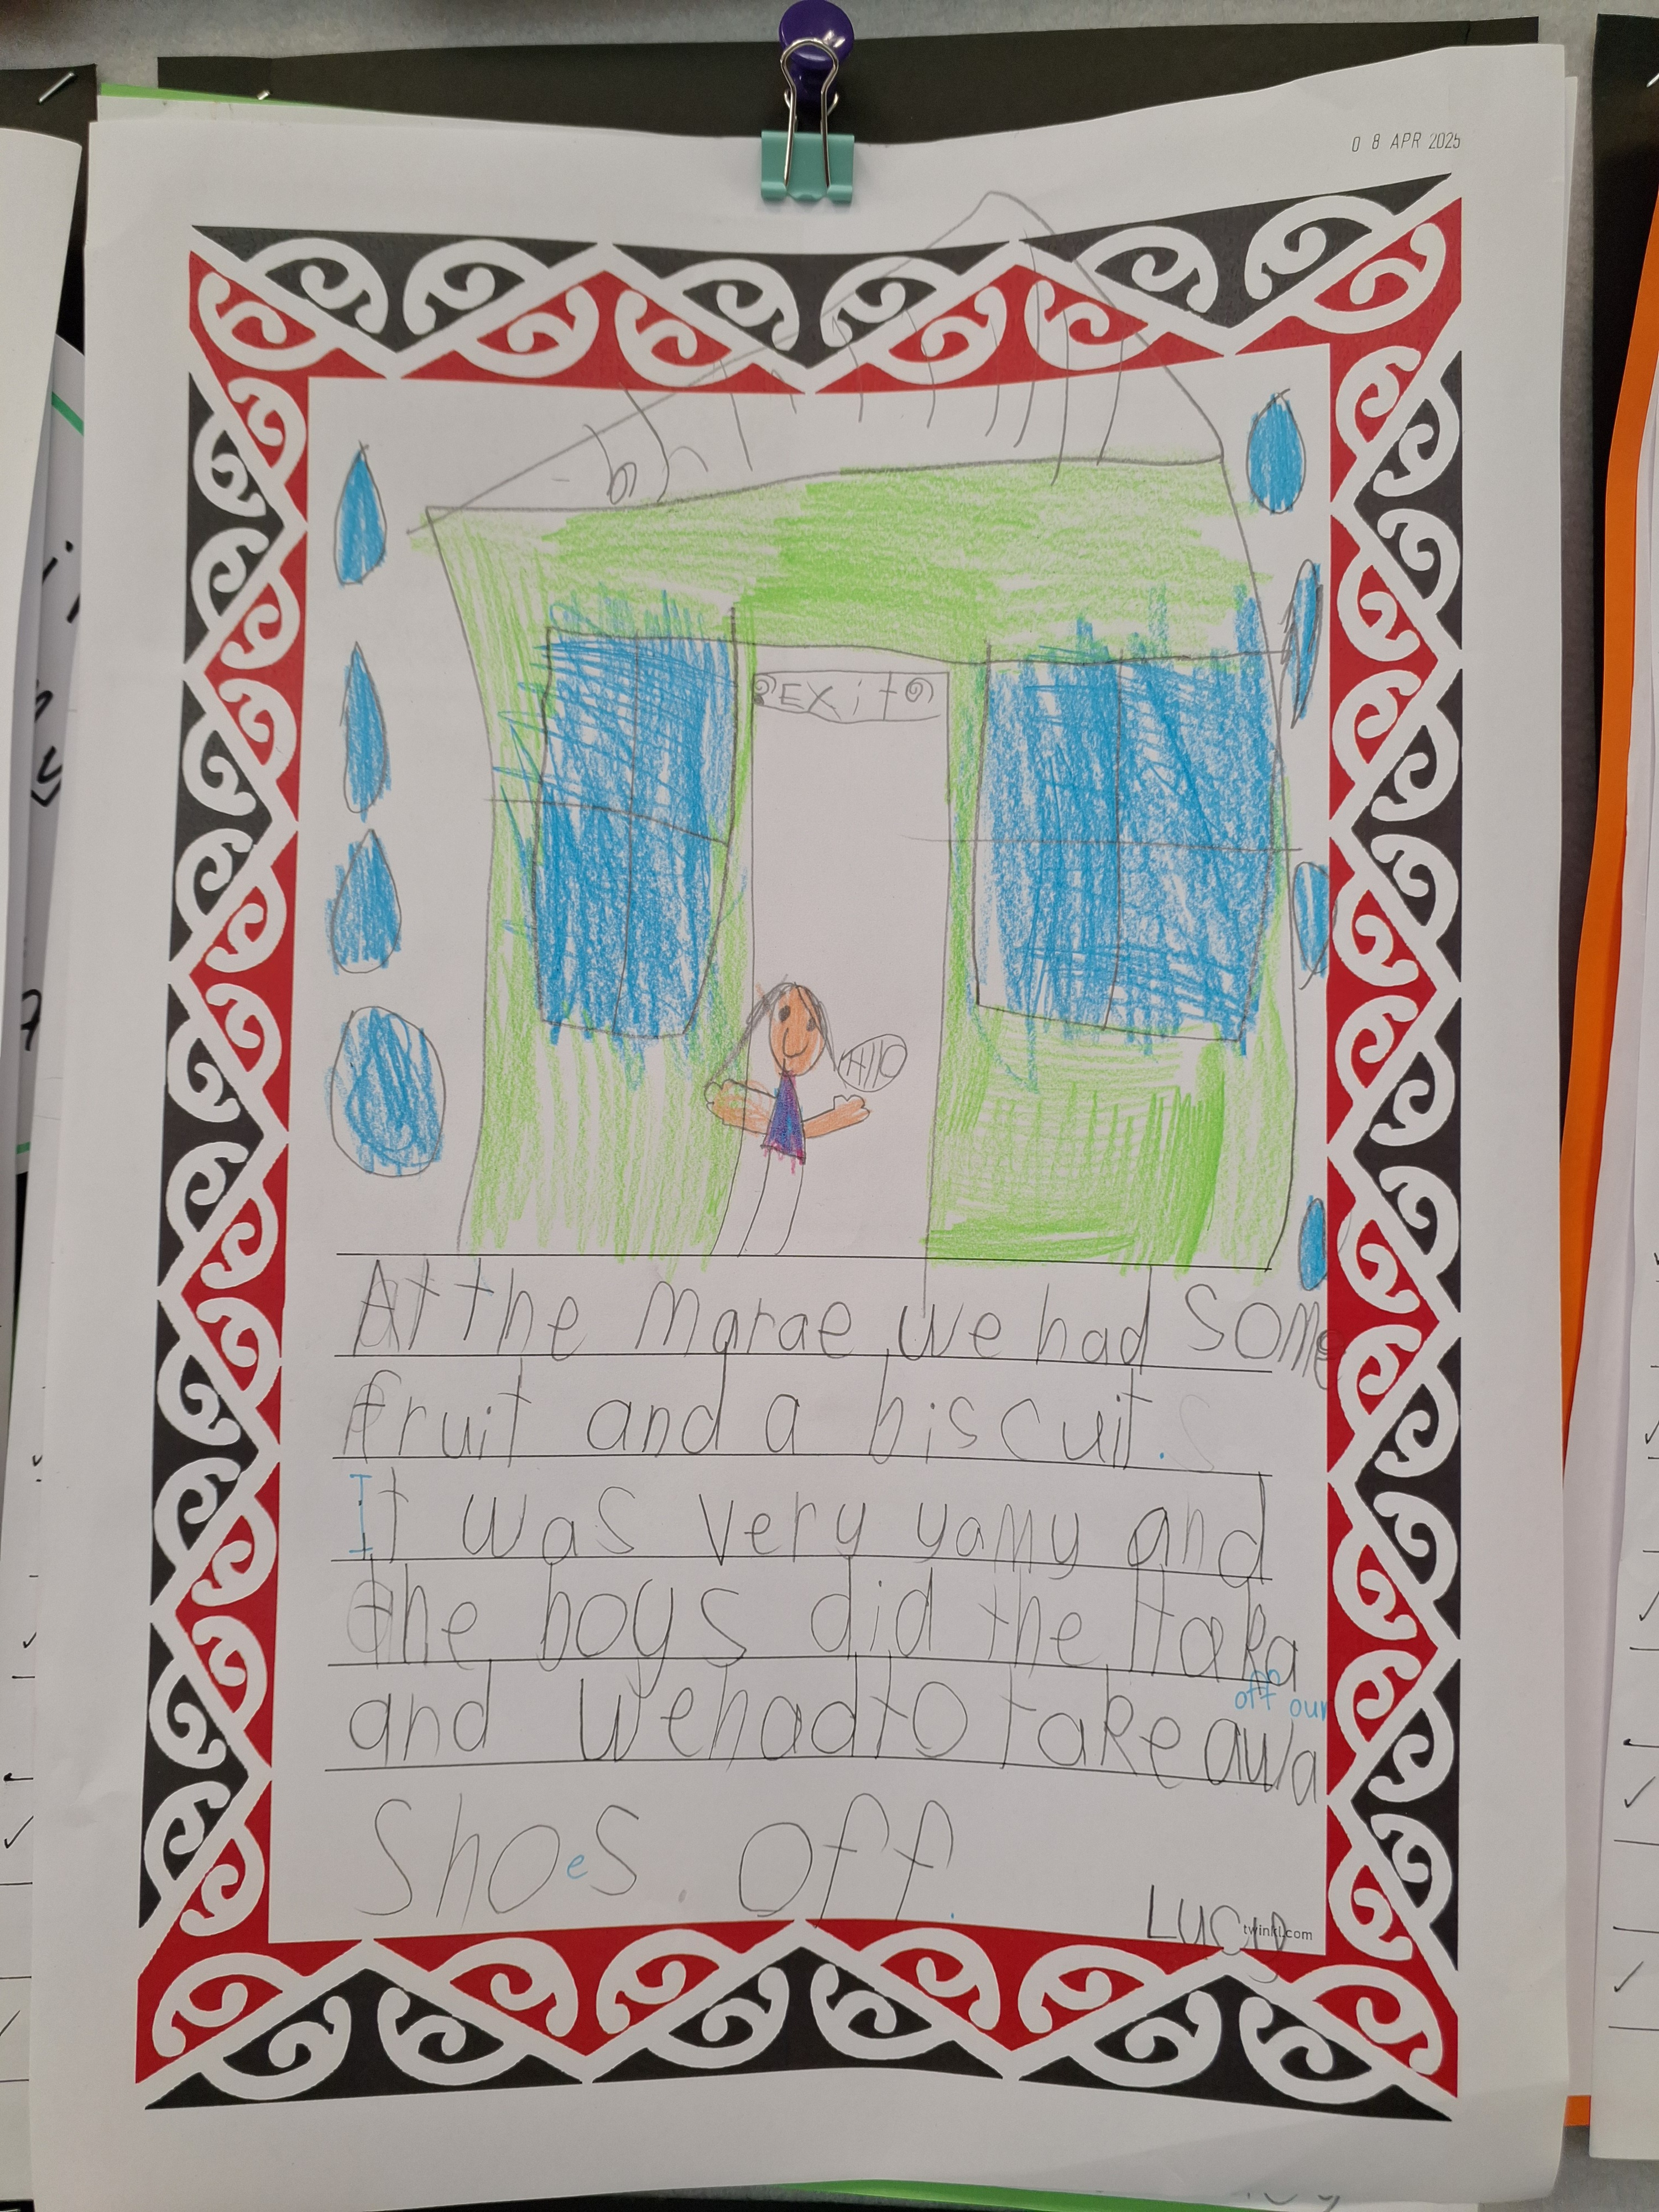 0 8 APR 2025
EXit
HllO
At the Marae we had some
fruit and a biscuit.
It was very yamy and
the boys did the Haka
off our
and wehadto take awa
Shoes off.
twinkl.com